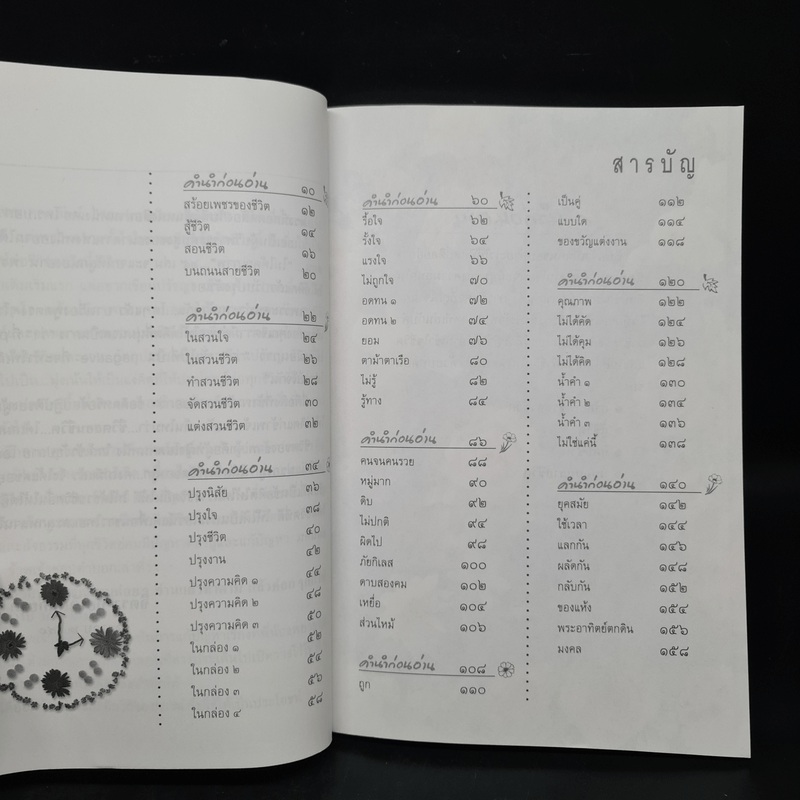 สารบัญ
คำนำก่อนอ่าน ๑๐
สร้อยเพชรของชีวิต ๑๒
สู้ชีวิต ๑๔
สอนชีวิต ๑๖
บนถนนสายชีวิต ๒๐
คำนำก่อนอ่าน ๒๒
ในสวนใจ ๒๔
ในสวนชีวิต ๒๖
ทำสวนชีวิต ๒๘
จัดสวนชีวิต ๓๐
แต่งสวนชีวิต ๓๒
คำนำก่อนอ่าน ๓๔
ปรุงนิสัย ๓๖
ปรุงใจ ๓๘
ปรุงชีวิต ๔๐
ปรุงงาน ๔๒
ปรุงความคิด ๑ ๔๔
ปรุงความคิด ๒ ๔๘
ปรุงความคิด ๓ ๕๐
ในกล่อง ๑ ๕๒
ในกล่อง ๒ ๕๔
ในกล่อง ๓ ๕๖
ในกล่อง ๔ ๕๘
คำนำก่อนอ่าน ๖๐
รื้อใจ ๖๒
รั้งใจ ๖๔
แรงใจ ๖๖
ไม่ถูกใจ ๗๐
อดทน ๑ ๗๒
อดทน ๒ ๗๔
ยอม ๗๖
ตาม้าตาเรือ ๘๐
ไม่รู้ ๘๒
รู้ทาง ๘๔
คำนำก่อนอ่าน ๘๖
คนจนคนรวย ๘๘
หมู่มาก ๙๐
ดิบ ๙๒
ไม่ปกติ ๙๔
ผิดไป ๙๘
ภัยกิเลส ๑๐๐
ดาบสองคม ๑๐๒
เหยื่อ ๑๐๔
ส่วนไหม้ ๑๐๖
คำนำก่อนอ่าน ๑๐๘
ถูก ๑๑๐
เป็นคู่ ๑๑๒
แบบใด ๑๑๔
ของขวัญแต่งงาน ๑๑๘
คำนำก่อนอ่าน ๑๒๐
คุณภาพ ๑๒๒
ไม่ได้คัด ๑๒๔
ไม่ได้คุม ๑๒๖
ไม่ได้คิด ๑๒๘
น้ำคำ ๑ ๑๓๐
น้ำคำ ๒ ๑๓๔
น้ำคำ ๓ ๑๓๖
ไม่ใช่แค่นี้ ๑๓๘
คำนำก่อนอ่าน ๑๔๐
ยุคสมัย ๑๔๒
ใช้เวลา ๑๔๔
แลกกัน ๑๔๖
ผลัดกัน ๑๔๘
กลับกัน ๑๕๒
ของแห้ง ๑๕๔
พระอาทิตย์ตกดิน ๑๕๖
มงคล ๑๕๘